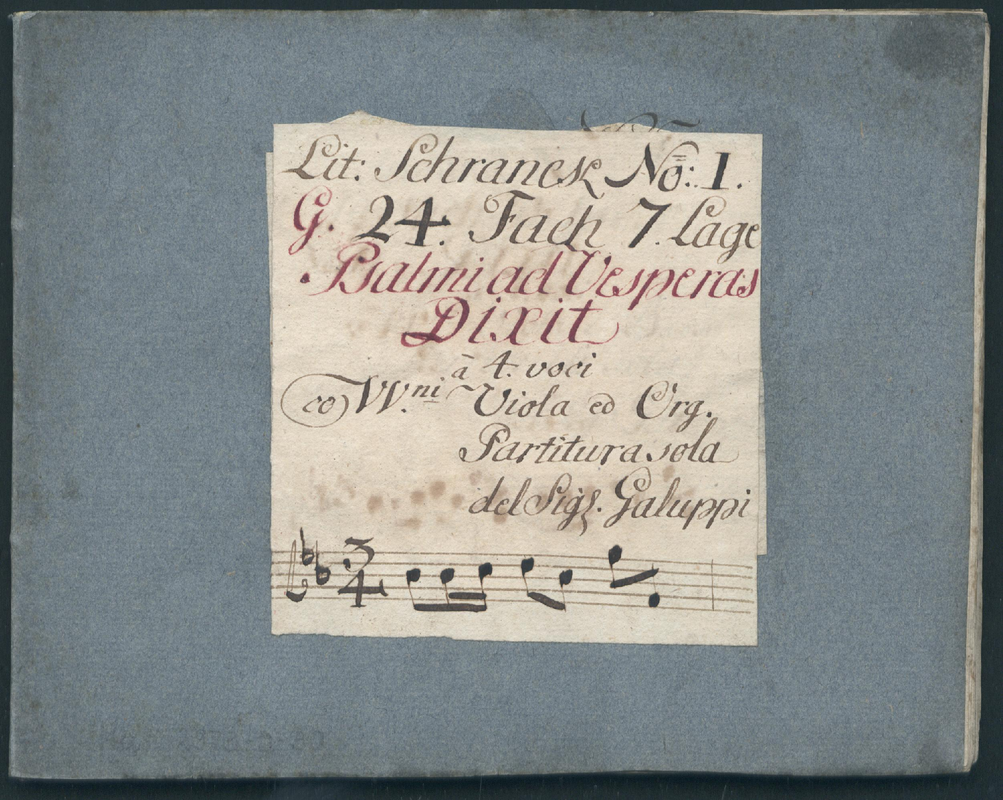 Lit: Schranck No: 1.
G. 24. Fach 7. Lage
Psalmi ad Vesperas
Dixit
â 4. voci
co VV.ni Viola ed Org.
Partitura sola
del Sigr. Galuppi
3
4